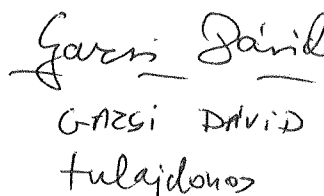 Gazsi Dávid
GAZSI DÁVID
tulajdonos